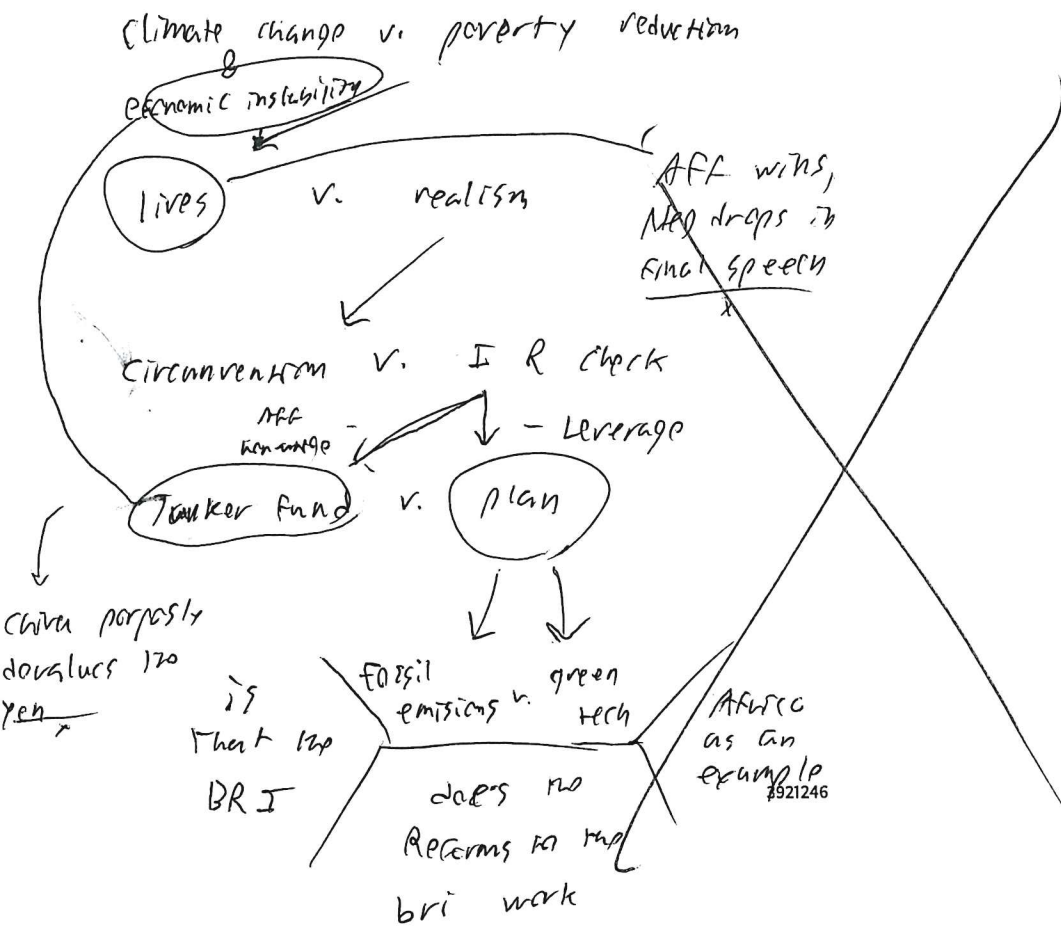 climate change v. poverty reduction
&
economic instability
lives v. realism
AFF wins,
Neg drops in
final speech
circumvention v. I R check
AFF
- Leverage
Tanker Fund v. plan
china porpasly
devalues the
yen
is
that the
BRI
fossil
emisions v. green
tech
Africa
as an
example
3921246
does the
Reforms to the
bri work